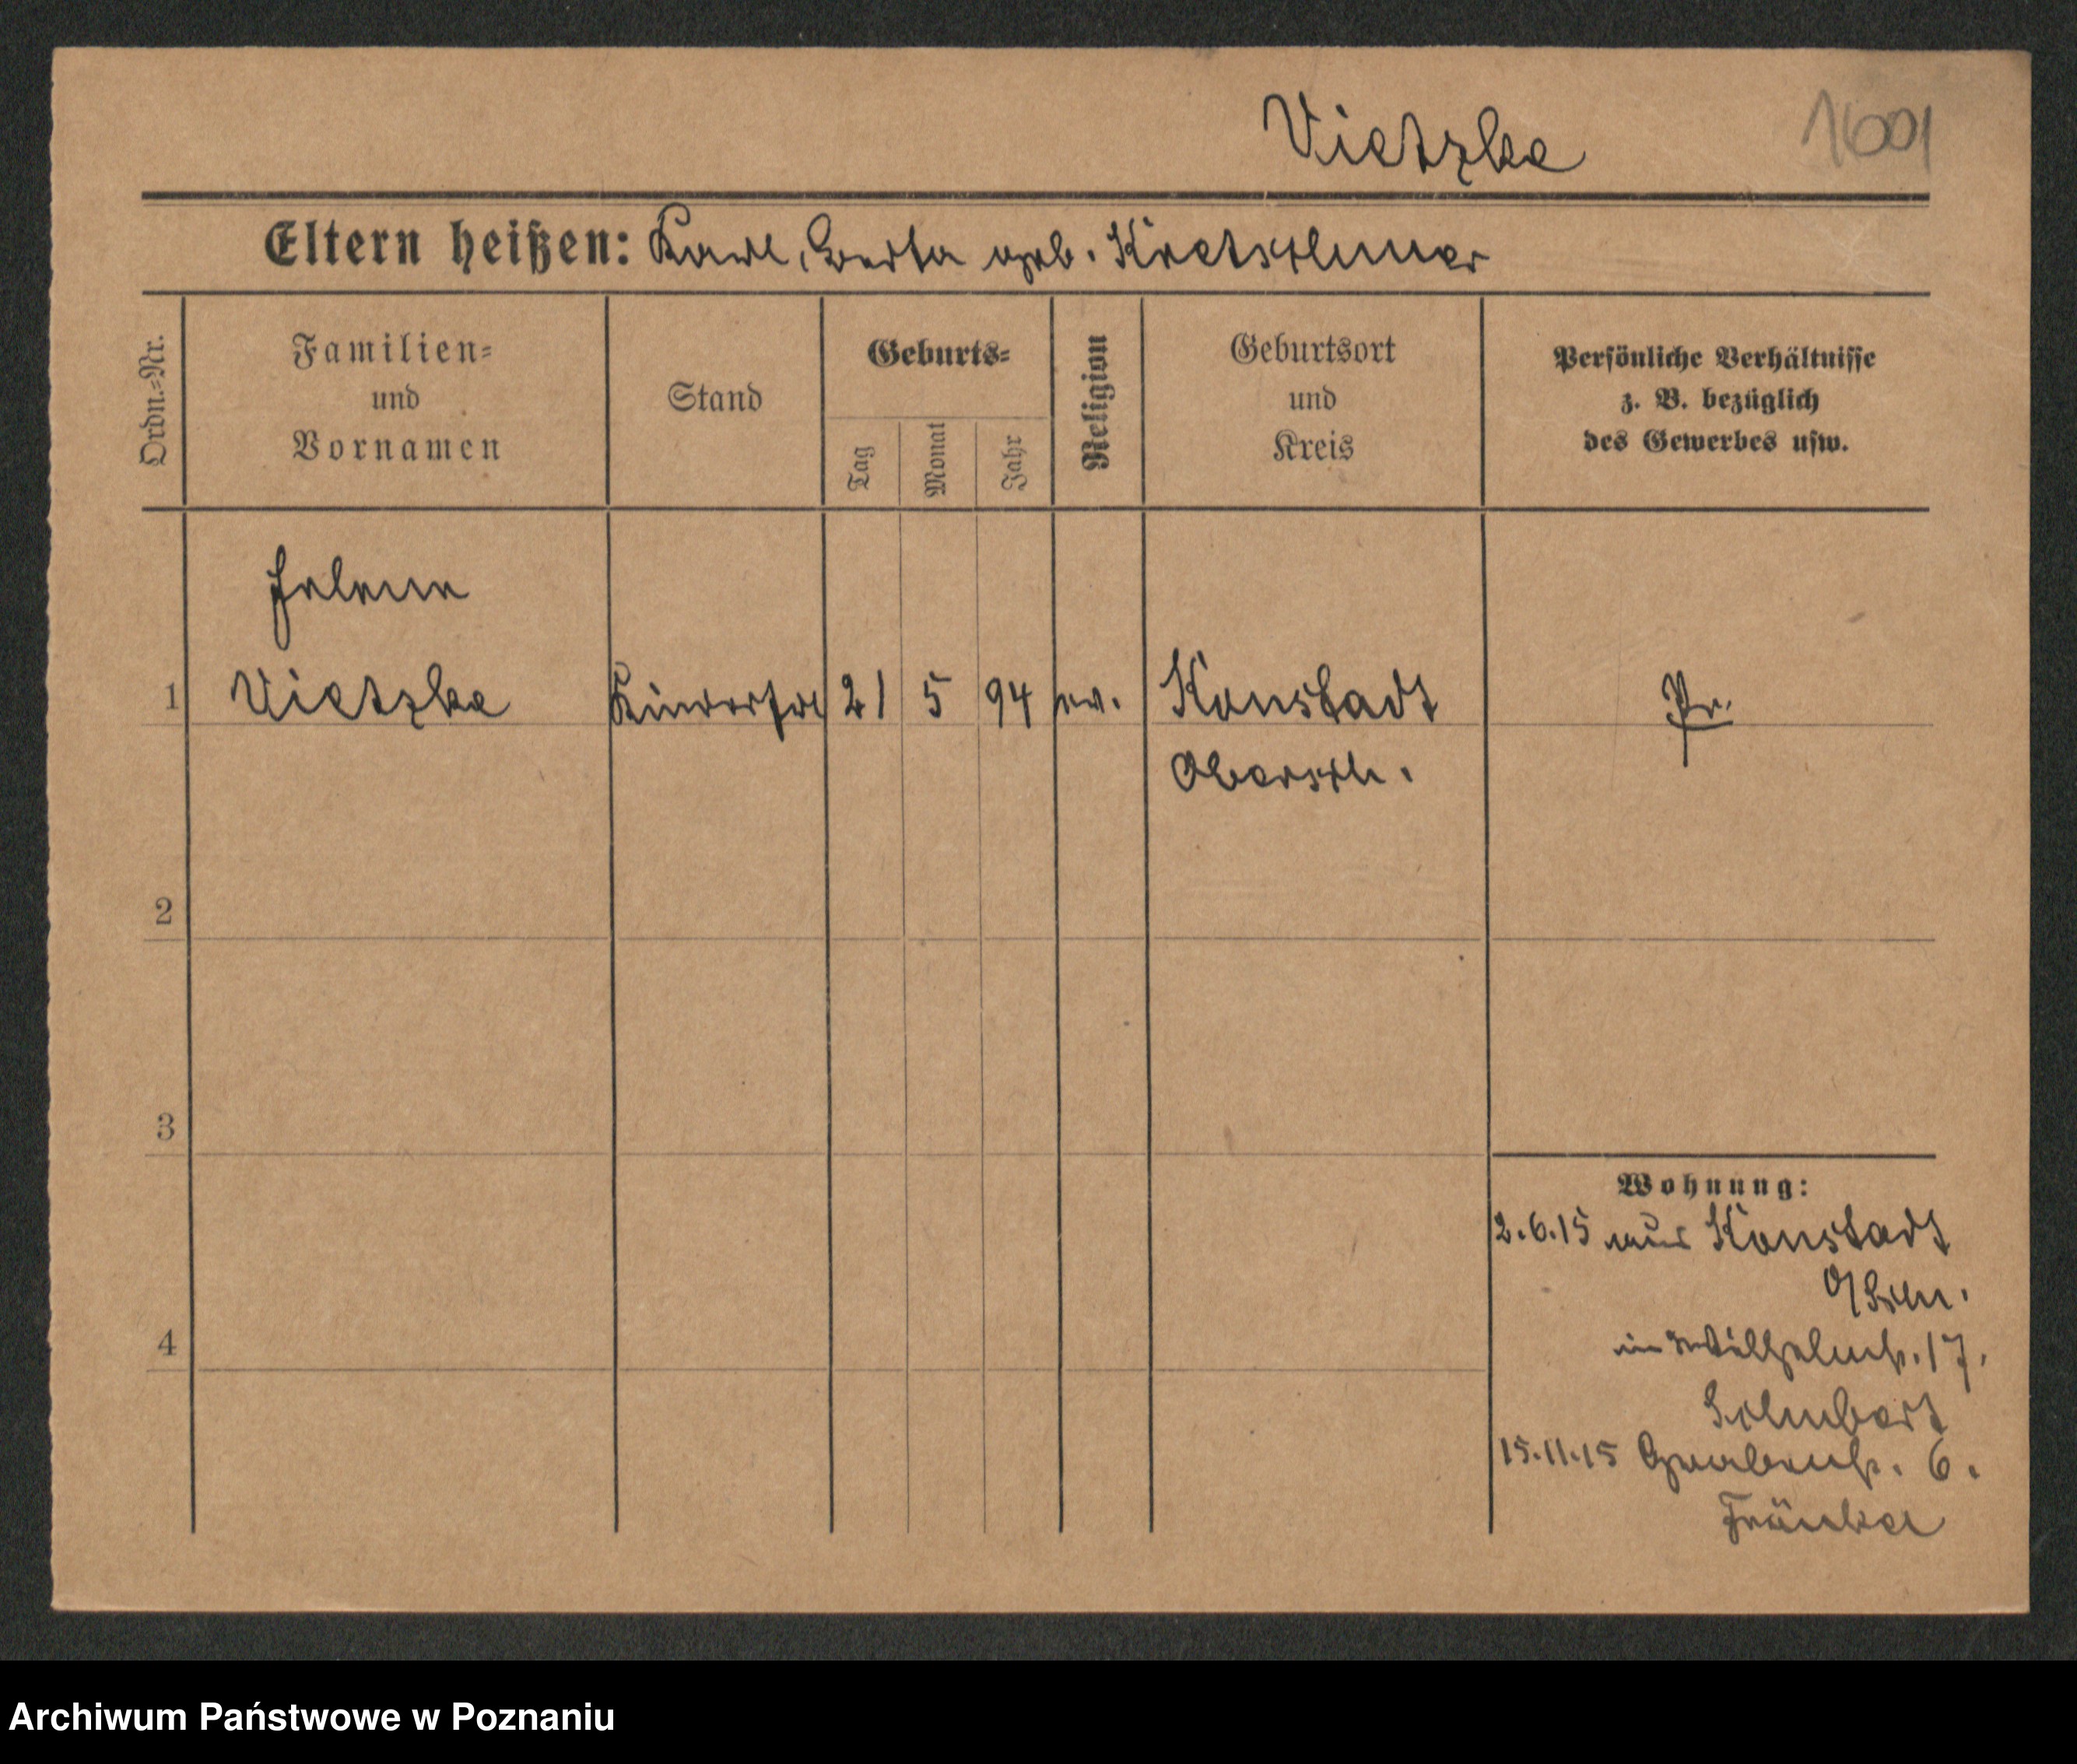 Vietzke 1601
Eltern heißen: Karl, Berta geb. Kretschmer
Ordn.=Nr.
Familien=
und
Vornamen
Stand
Geburts=
Tag
Monat
Jahr
Religion
Geburtsort
und
Kreis
Persönliche Verhältnisse
z. B. bezüglich
des Gewerbes usw.
Helene
1 Vietzke Kinderfrl 21 5 94 ev. Konstadt Pr.
Obersch.
2
3
Wohnung:
2.6.15 aus Konstadt
O/Schl.
4
Wilhelmstr. 17.
15.11.15 Grabenstr. 6.
Fränkel
Archiwum Państwowe w Poznaniu